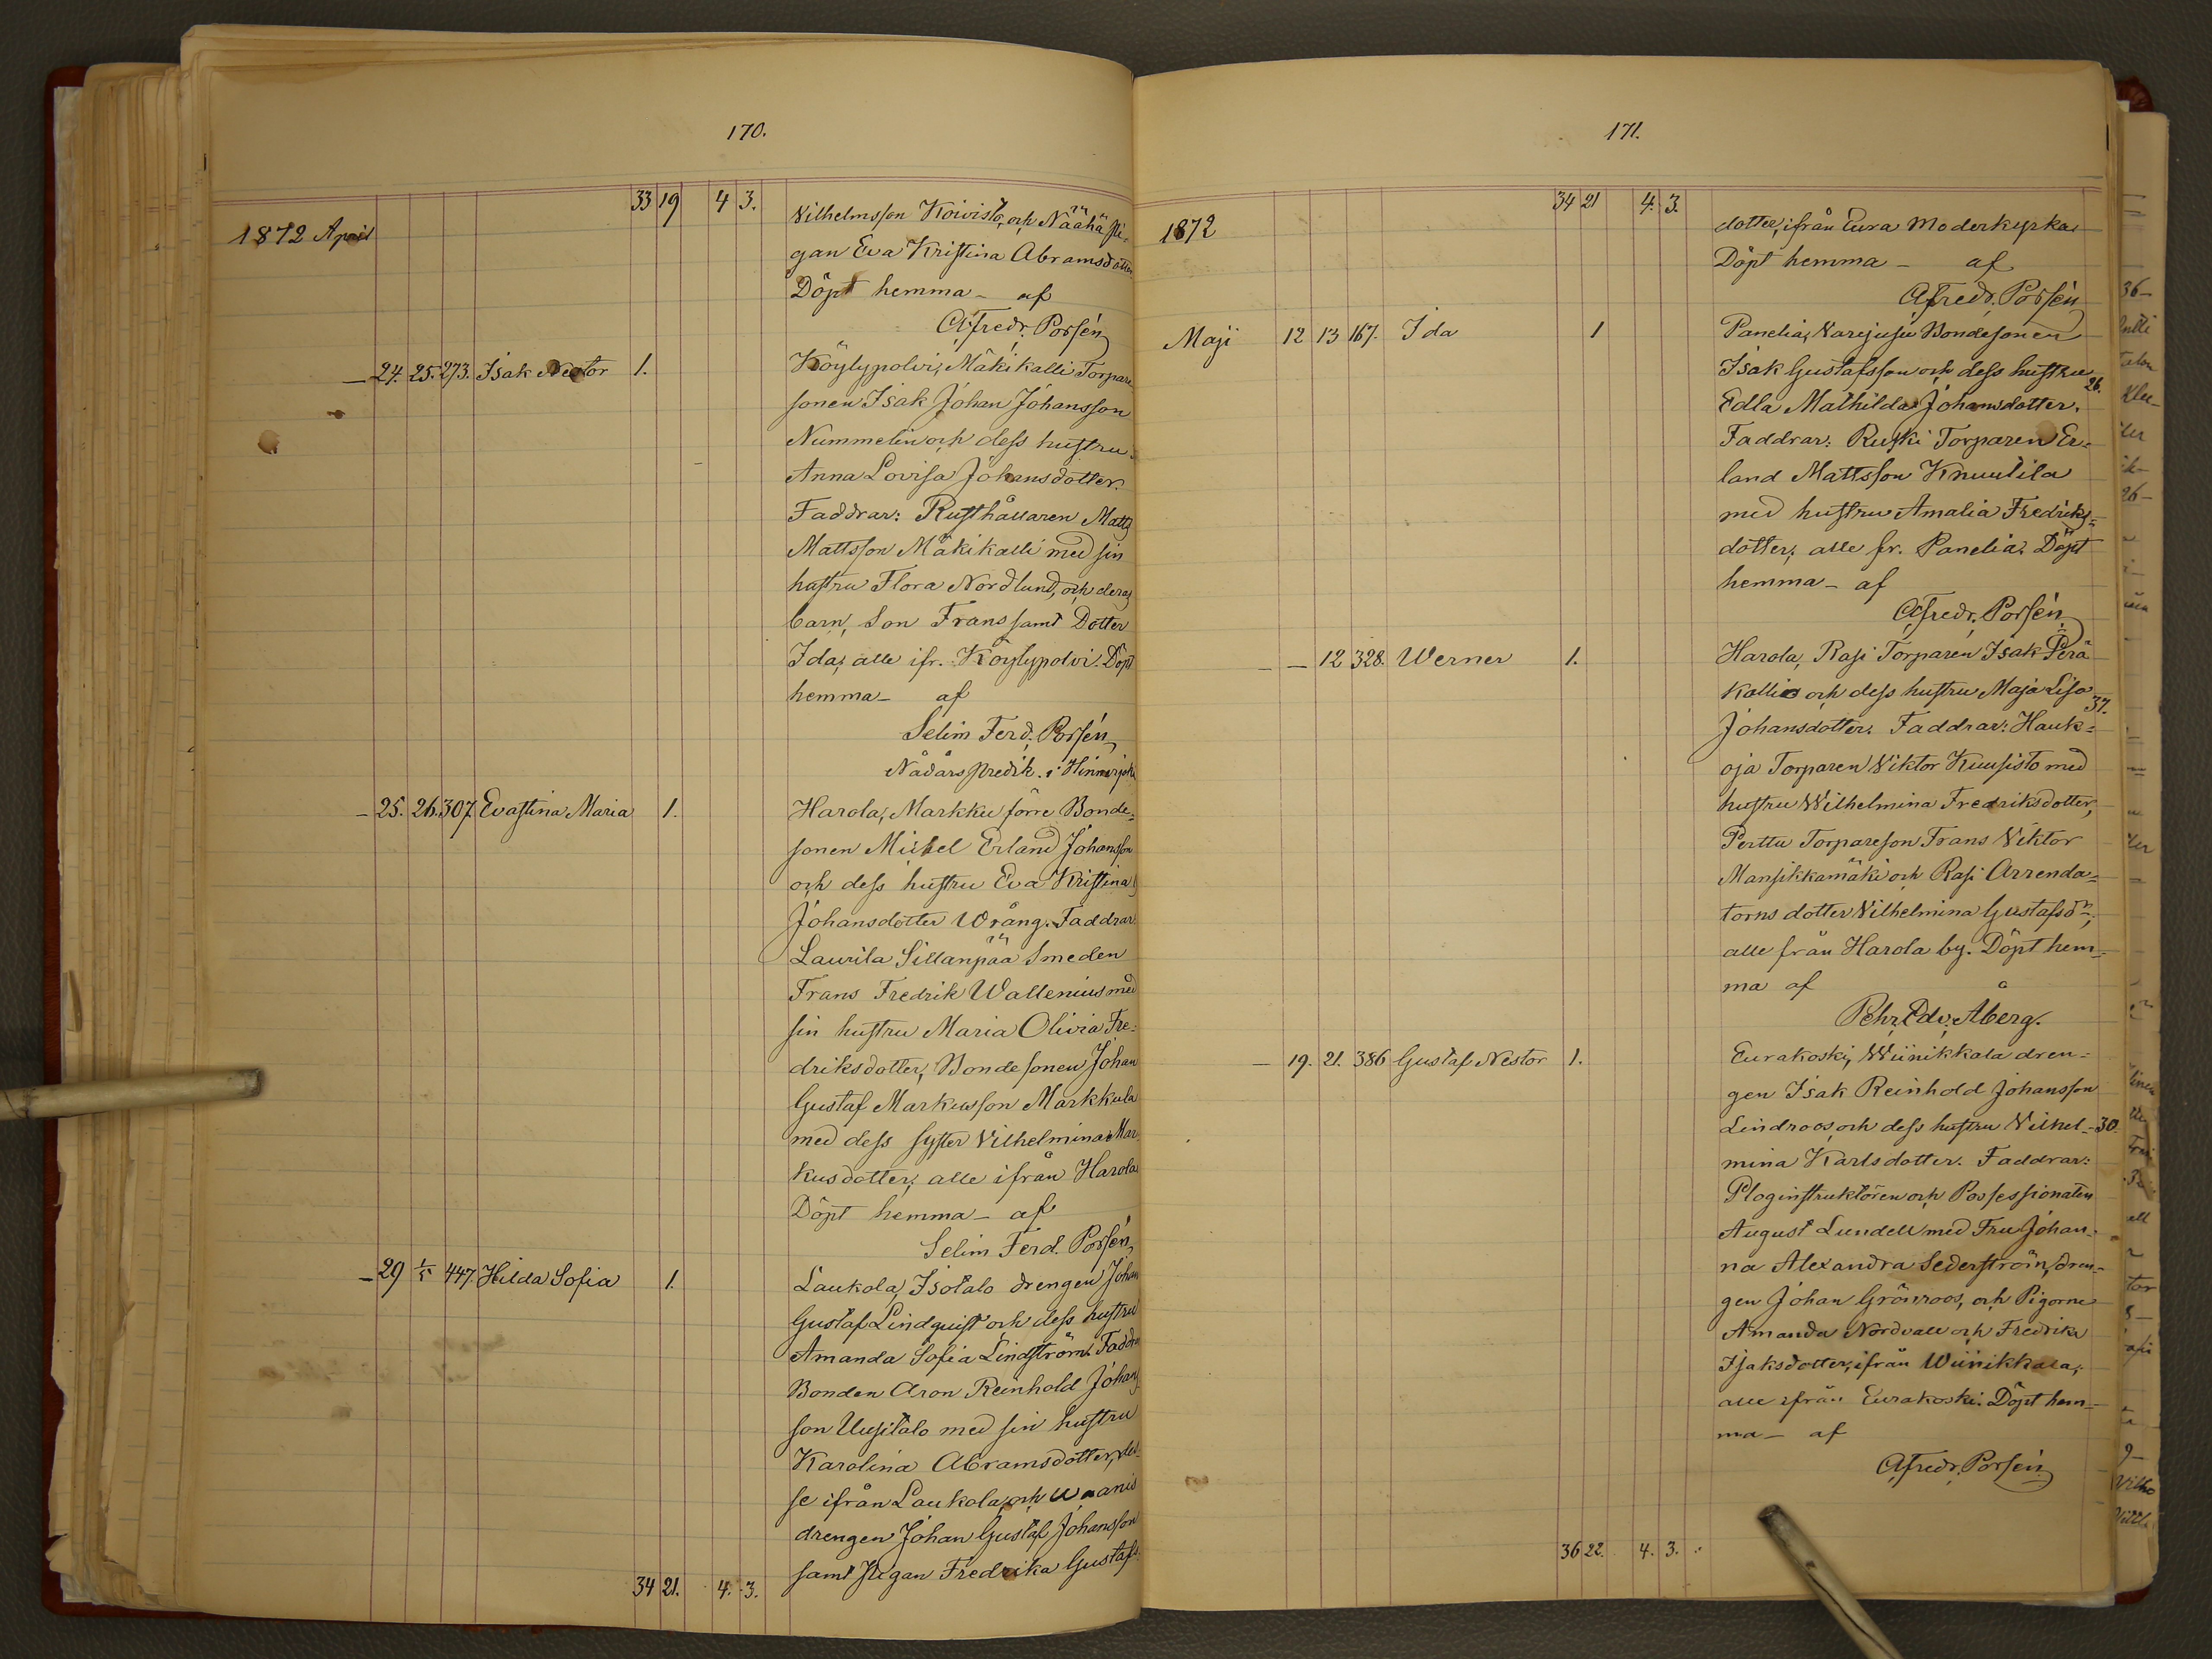 170.
33 19 4 3.
1872 April
Vilhelmsson Koivisto, och Näähä pi-
gan Eva Kristina Abramsdotter
Döpt hemma - af
Alfredr. Porsén
- 24. 25. 273. Isak Nestor 1. Köylypolvi, Mäkikalli Torpare
sonen Isak Johan Johansson
Nummelin och dess hustru
Anna Lovisa Johansdotter.
Faddrar: Rusthållaren Matts
Mattsson Mäkikalli med sin
hustru Flora Nordlund, och deras
barn, Son Frans samt Dotter
Ida, alle ifr. Köylypolvi. Döpt
hemma - af
Selim Ferd. Porsén,
Nådårspredik. i Hinnerjoki
- 25. 26. 307. Evastina Maria 1. Harola, Markku förre Bonde-
sonen Mickel Erland Johansson
och dess hustru Eva Kristina
Johansdotter Wrång. Faddrar:
Laurila Sillanpää Smeden
Frans Fredrik Wallenius med
sin hustru Maria Olivia Fre-
driksdotter, Bondesonen Johan
Gustaf Markusson Markkula
med dess syster Vilhelmina Mar-
kusdotter, alle ifrån Harola
Döpt hemma - af
Selim Ferd. Porsén,
- 29 1/5 447. Hilda Sofia 1. Laukola, Isotalo drengen Johan
Gustaf Lindquist och dess hustru
Amanda Sofia Lindström. Faddr.
Bonden Aron Reinhold Johans
son Uusitalo med sin hustru
Karolina Abramsdotter, des-
se ifrån Laukola, och Waanis
drengen Johan Gustaf Johansson
samt Pigan Fredrika Gustafs
34 21. 4. 3.
171.
34 21 4. 3.
1872
dotter, ifrån Eura Moderkyrka
Döpt hemma - af
Alfredr. Porsén
Maji 12 13 167. Ida 1 Panelia, Varjusu Bondesonen
Isak Gustafsson och dess hustru
26.
Edla Mathilda Johansdotter.
Faddrar: Ruski Torparen Er-
land Mattsson Knuutila
med hustru Amalia Fredriks-
dotter, alle fr. Panelia. Döpt
hemma - af
Alfredr. Porsén
- - 12 328. Werner 1. Harola, Rasi Torparen Isak Perä
kallio och dess hustru Maja Lisa
37.
Johansdotter. Faddrar: Hauk-
oja Torparen Viktor Kuusisto med
hustru Wilhelmina Fredriksdotter,
Perttu Torpareson Frans Viktor
Mansikkamäki och Rasi Arrenda-
torns dotter Vilhelmina Gustafsdr,
alle från Harola by. Döpt hem-
ma af
Pehr. Edv. Åberg.
- 19. 21. 386 Gustaf Nestor 1. Eurakoski, Wiinikkala dren-
gen Isak Reinhold Johansson
Lindroos, och dess hustru Vilhel- 30.
mina Karlsdotter. Faddrar:
Ploginstruktören och Possessionaten
August Lundell med Fru Johan-
na Alexandra Sederström, dren-
gen Johan Grönroos, och Pigorne
Amanda Nordvall och Fredrika
Isaksdotter, ifrån Wiinikkala,
alle ifrån Eurakoski. Döpt hem-
ma - af
Alfredr. Porsén
36 22. 4. 3.